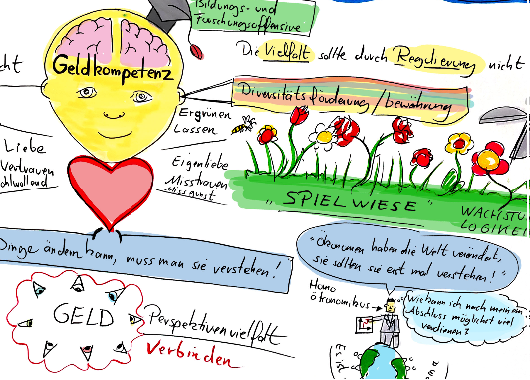 Bildungs- und
Forschungsoffensive
Die Vielfalt sollte durch Regulierung nicht
Geldkompetenz
Diversitätsförderung/bewahrung
Ergrünen
Lassen
Liebe
Vertrauen
Wohlwollend
Eigenliebe
Misstrauen
Missgunst
"SPIELWIESE"
WACHSTU
LOGIKE
Dinge ändern kann, muss man sie verstehen!
"Ökonomen haben die Welt verändert,
sie sollten sie erst mal verstehen!"
Homo
ökonomikus
Wie kann ich nach meinem
Abschluss möglichst viel
verdienen?
GELD
Perspektivenvielfalt
verbinden